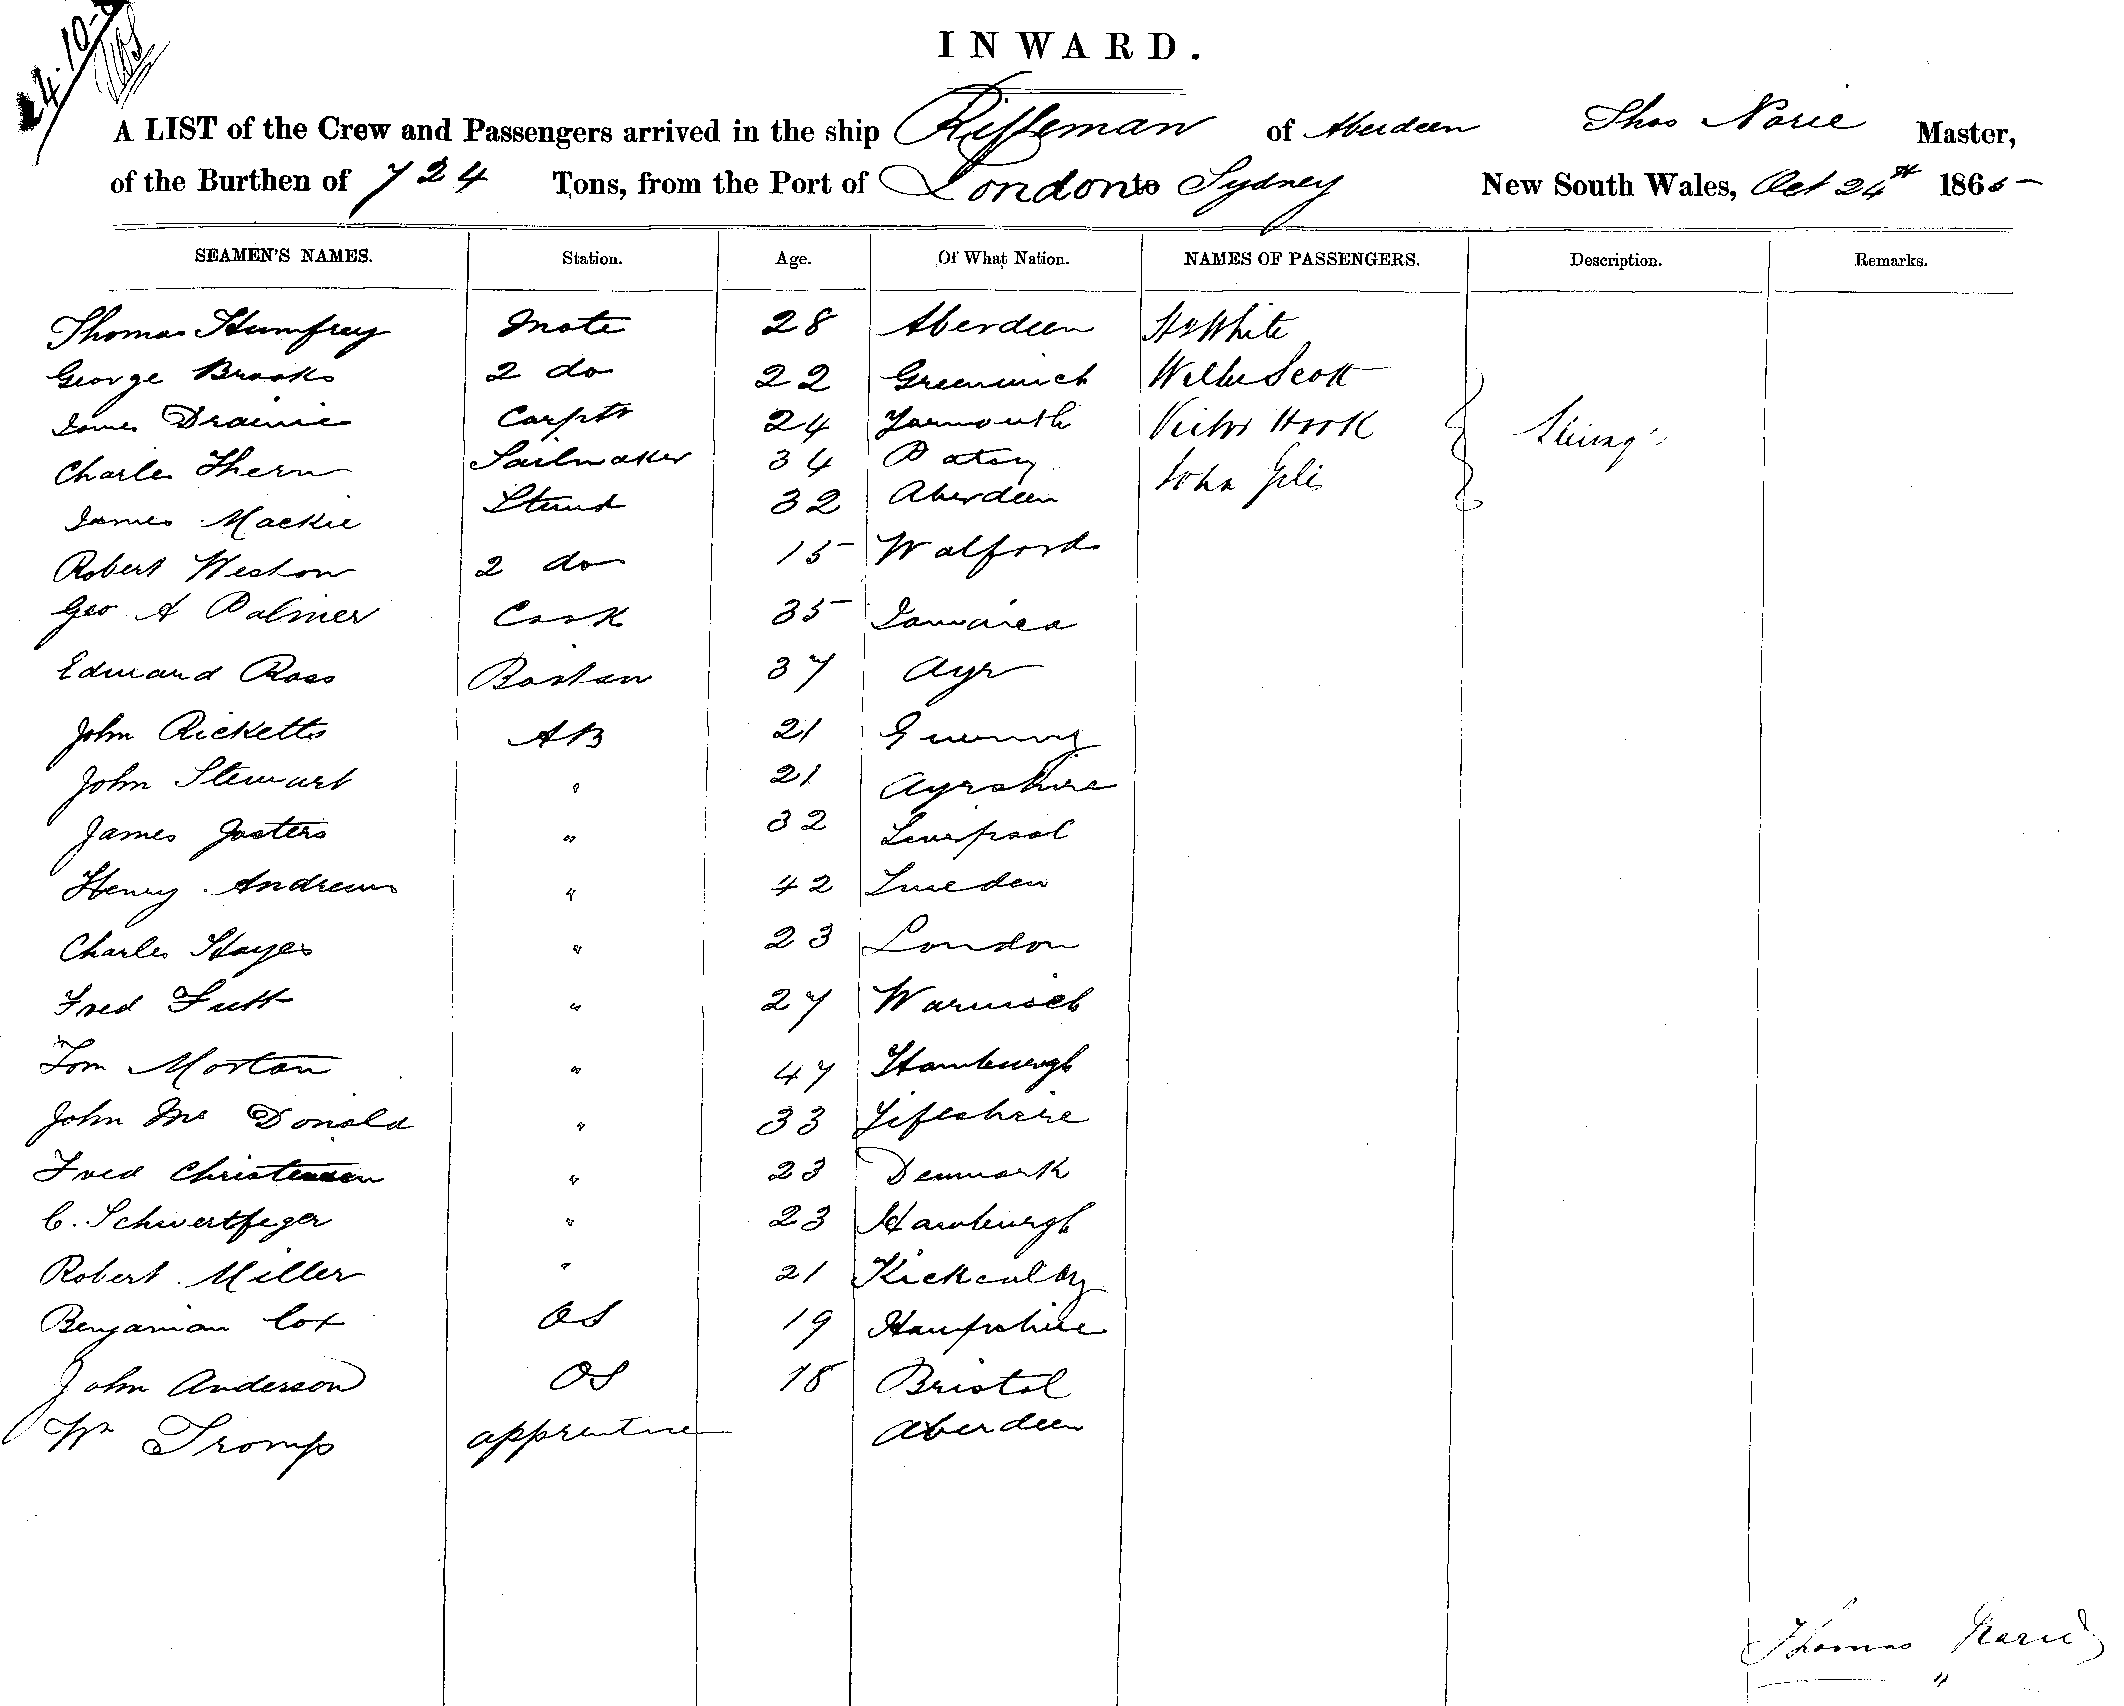 24.10-
INWARD.
A LIST of the Crew and Passengers arrived in the ship Rifleman of Aberdeen Thos Norie Master,
of the Burthen of 724 Tons, from the Port of London to Sydney New South Wales, Oct 24th 1865
SEAMEN'S NAMES. Station. Age. Of What Nation. NAMES OF PASSENGERS. Description. Remarks.
Thomas Humfrey Mate 28 Aberdeen White
George Brooks 2 do 22 Greenwich Scott
James Carptr 24 Yarmouth Victor Hook
Charles Thern Sailmaker 34 John
James Mackie Steward 32 Aberdeen
Robert Weston 2 do 15 Walford
Geo A Palmer Cook 35 Jamaica
Edward Ross Boatswn 37 Ayr
John Ricketts AB 21
John Stewart " 21 Ayrshire
James Josters " 32 Liverpool
Henry Andrews " 42 Sweden
Charles Hayes " 23 London
Fred " 27 Warwick
Tom Morton " 47 Hamburgh
John Mc Donald " 33 Fifeshire
Fred Christensen " 23 Denmark
C. Schwertfeger " 23 Hamburgh
Robert Miller " 21
Benjamian Cox OS 19 Hampshire
John Anderson OS 18 Bristol
Wm Tromp apprentice Aberdeen
Thomas Norie